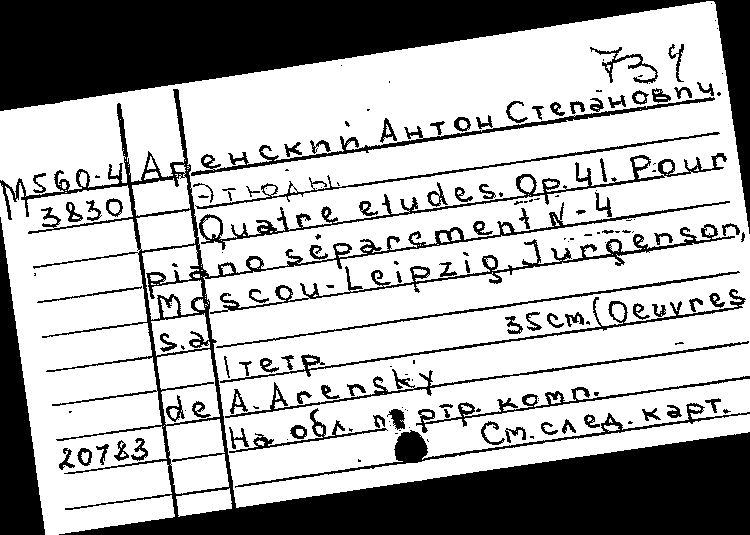 734
Аренский, Антон Степанович.
М560-4
3830
Этюды.
Quatre etudes. Op. 41. Pour
piano séparement N-4
Moscou-Leipzig, Jurgenson,
s.a. 35cm. (Oeuvres
1 тетр.
de A. Arensky
На обл. портр. комп.
20783
См. след. карт.